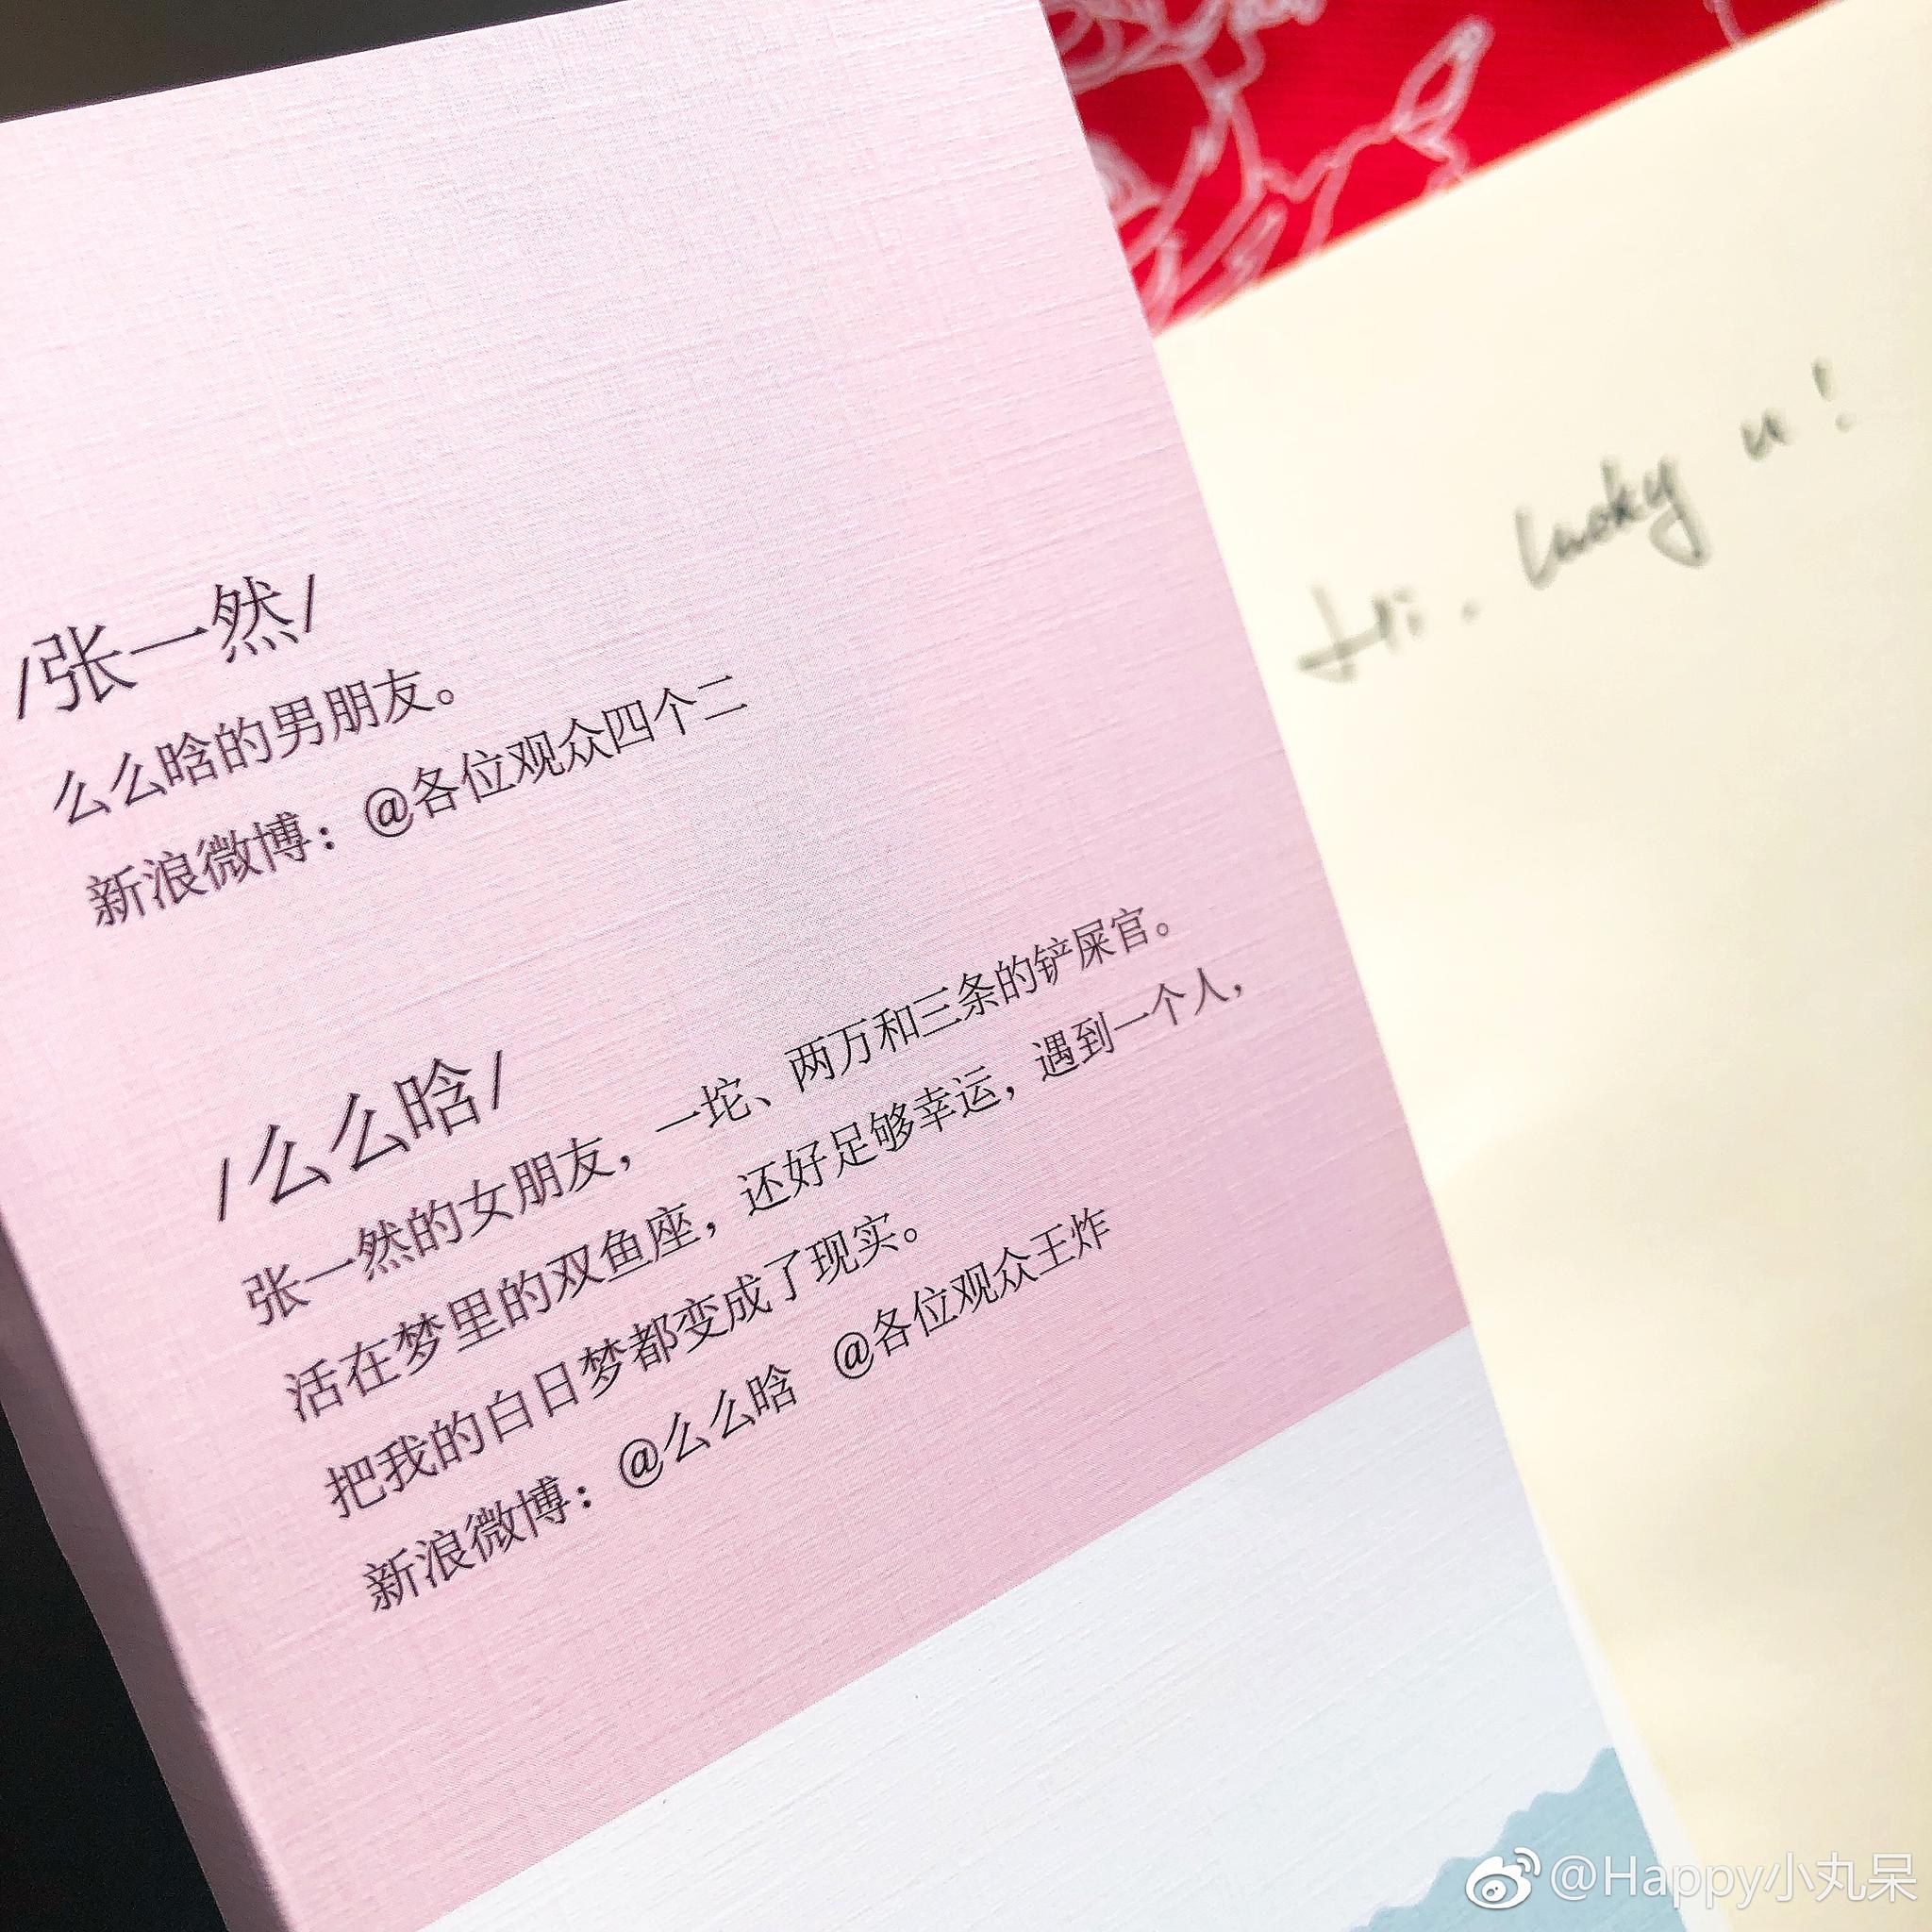 /张一然/
么么晗的男朋友。
新浪微博：@各位观众四个二
/么么晗/
张一然的女朋友，一坨、两万和三条的铲屎官。
活在梦里的双鱼座，还好足够幸运，遇到一个人，
把我的白日梦都变成了现实。
新浪微博：@么么晗 @各位观众王炸
Hi. lucky u!
@Happy小丸呆